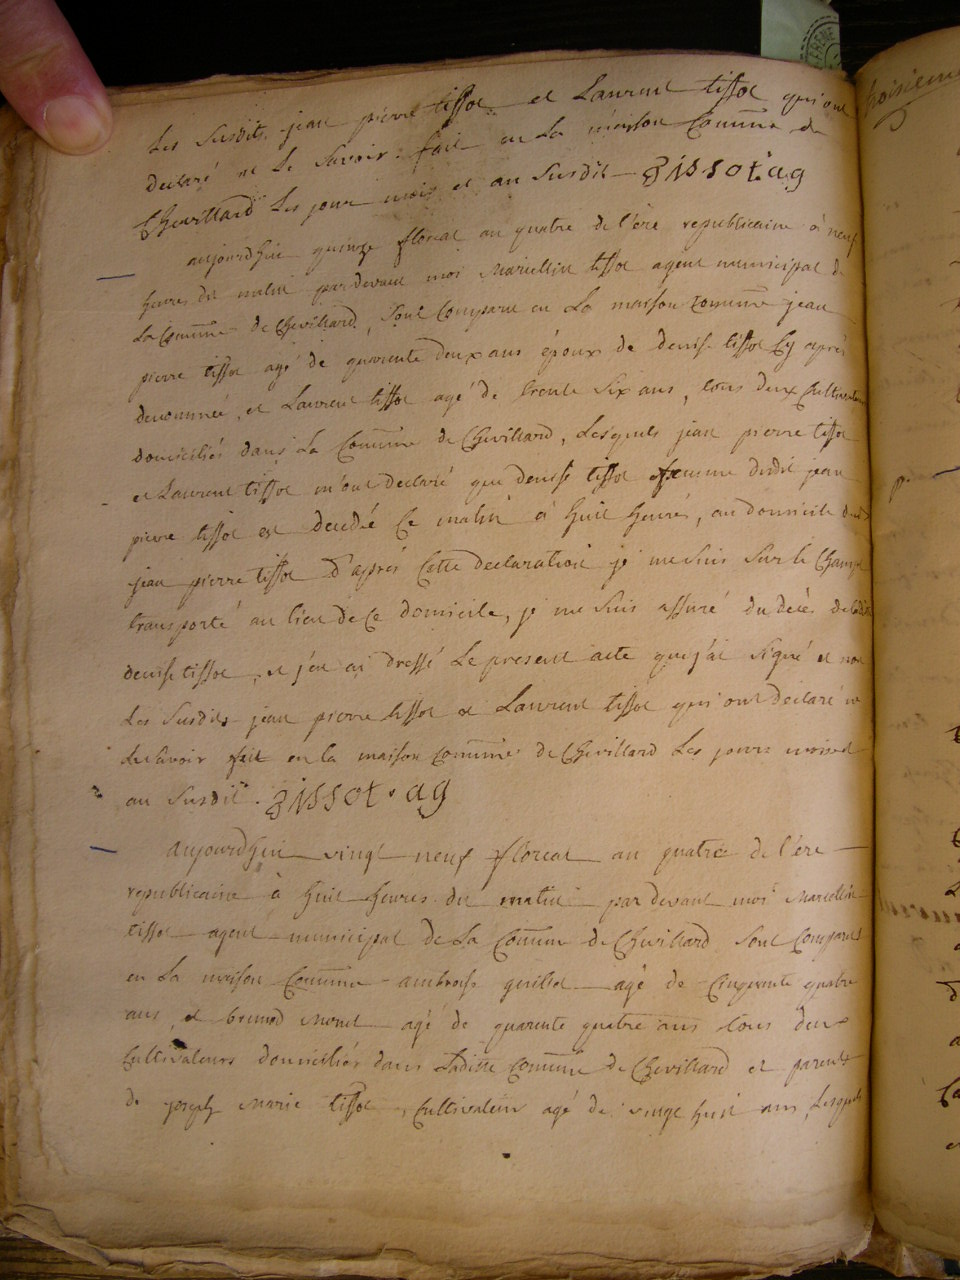 Les susdits jean pierre tissot et Laurent tissot qui ont
declaré ne le savoir. fait en La maison Commune de
Chevillard Les jour mois et an susdit Tissot. ag
aujourdhui quinze floreal an quatre de l'ére republicaine à neuf
heures du matin pardevant moi Marcellin tissot agent municipal de
La Commune de Chevillard, sont comparu en La maison commune jean
pierre tissot agé de quarente deux ans époux de denise tissot Cy après
denommée, et Laurent tissot agé de trente six ans, tous deux Cultivateurs
domiciliés dans La Commune de Chevillard, Lesquels jean pierre tissot
et Laurent tissot m'ont declaré que denise tissot femme dudit jean
pierre tissot est decedé Ce matin à huit heures, au domicile dudit
jean pierre tissot d'après Cette declaration je me suis sur le Champ
transporté au lieu de Ce domicile, je me suis assuré du decès de ladite
denise tissot, et j'en ai dressé Le present acte que j'ai signé et non
Les susdits jean pierre tissot et Laurent tissot qui ont declaré ne
Le savoir fait en la maison commune de Chevillard Les jours mois et
an susdit. Tissot. ag
Aujourdhui vingt neuf floreal an quatre de l'ére
republicaine à huit heures du matin par devant moi Marcellin
tissot agent municipal de La Commune de Chevillard sont Comparus
en La maison Commune ambroise guillot agé de Cinquante quatre
ans, et agé de quarente quatre ans tous deux
Cultivateurs domiciliés dans Laditte Commune de Chevillard et parents
de joseph Marie tissot, Cultivateur agé de vingt huit ans, Lesquels
troisieme